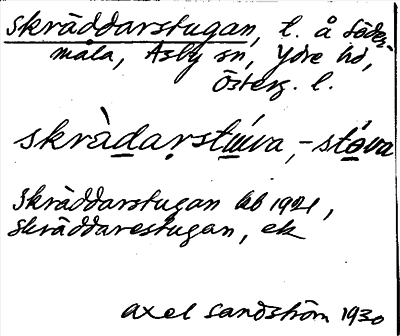 skräddarstugan, t. å Söder-
måla, Asby sn, Ydre hd,
Österg. l.
skràdarstúva, -stóva
Skräddarstugan kb 1921,
Skräddarestugan, ek
Axel Sandström 1930